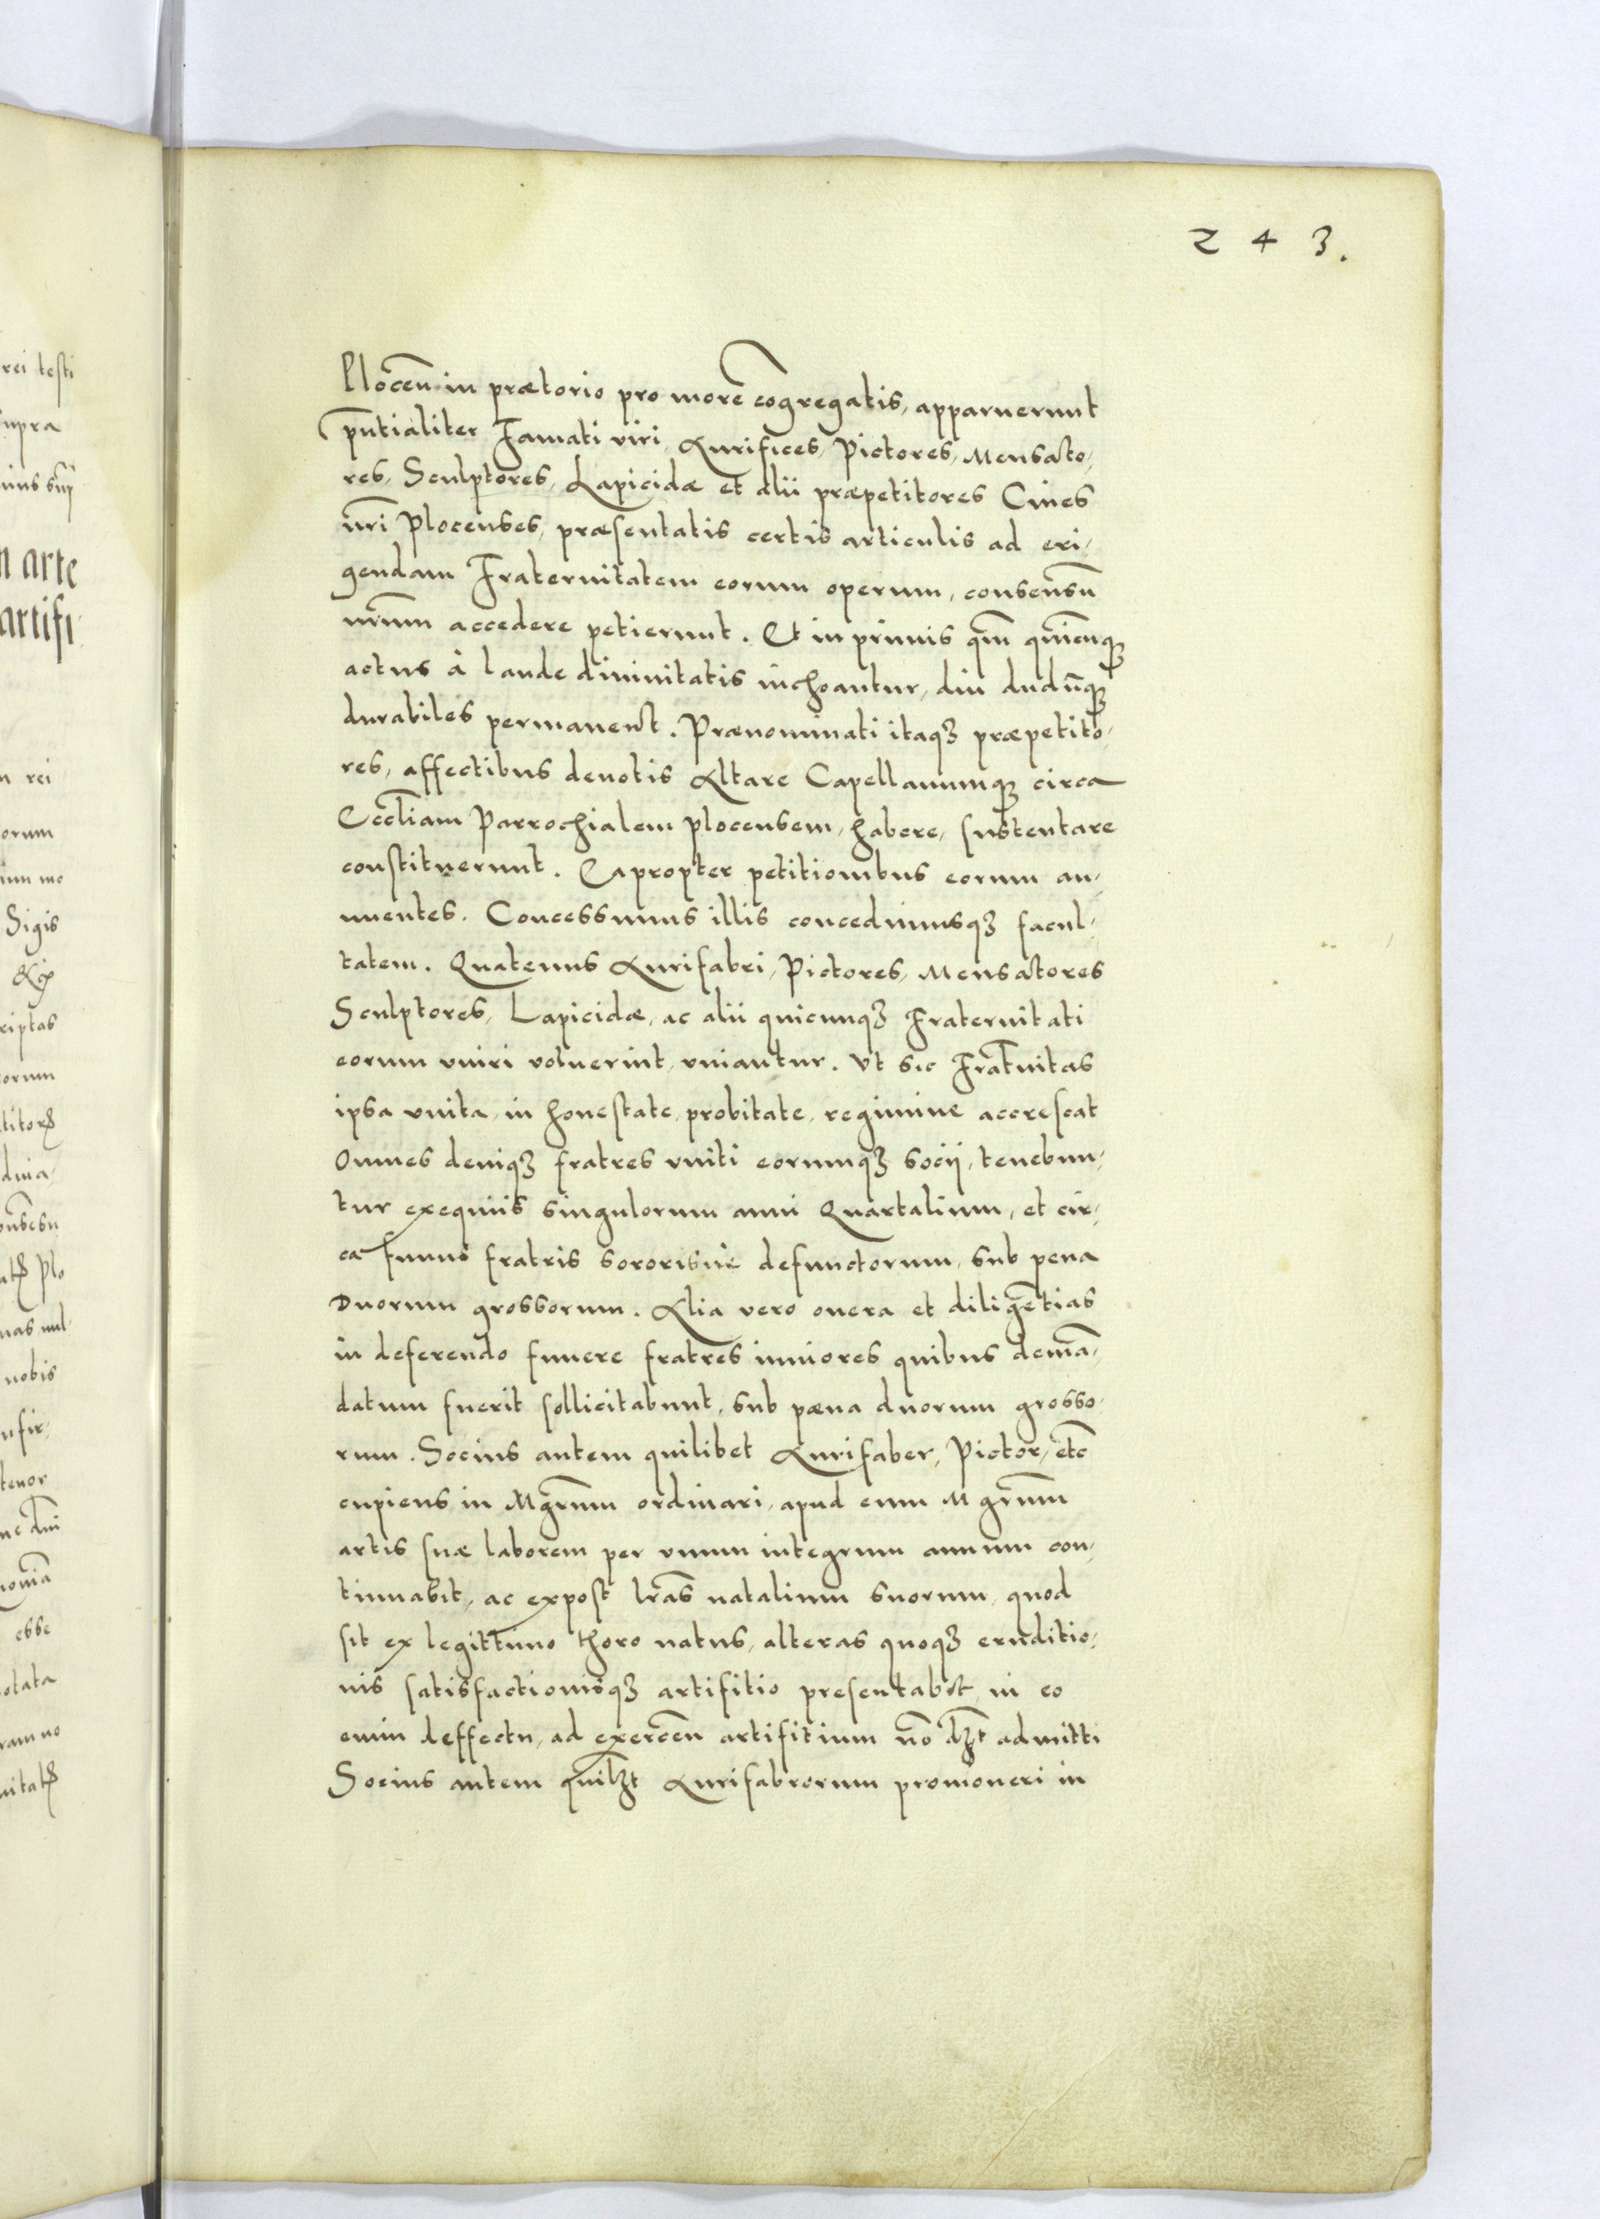 rei testi
supra
n arte
artifi
n rei
orum
Sigis
riptas
orum
dina
Plo
nobis
tenor
esse
otata
ram no
243.
Plocen̄ in prætorio pro more cōgregatis, apparuerunt
pn̄tialiter Famati viri, Aurifices, Pictores, Mensato,
res, Sculptores, Lapicidæ et alii præpetitores Ciues
nr̄i Plocenses, præsentatis certis articulis ad eri,
gendam Fraternitatem eorum operum, consensū
nr̄um accedere petierunt. Et in primis qm̄ quicunq3
actus à laude diuinitatis inchoantur, diu dudūq3
durabiles permanent. Prænominati itaq3 præpetito,
res, affectibus deuotis Altare Capellanumq3 circa
Eccl̄iam Parrochialem Plocensem, habere, sustentare
constituerunt. Eapropter petitionibus eorum an,
nuentes. Concessimus illis concedimusq3 facul,
tatem. Quatenus Aurifabri, Pictores, Mensatores
Sculptores, Lapicidæ, ac alii quicunq3 Fraternitati
eorum vniri voluerint, vniantur. Vt sic Frat̄nitas
ipsa vnita, in honestate, probitate, regimine accrescat
Omnes deniq3 fratres vniti eorumq3 socij, tenebun,
tur exequiis singulorum anni Quartalium, et cir,
ca funus fratris sororisue defunctorum, sub pena
Duorum grossorum. Alia vero onera et diligētias
in deferendo funere fratres iuniores quibus demā,
datum fuerit sollicitabunt, sub pæna duorum grosso,
rum. Socius autem quilibet Aurifaber, Pictor, etc̄
cupiens in Mgr̄um ordinari, apud eum Mgr̄um
artis suæ laborem per vnum integrum annum con,
tinuabit, ac expost lr̄as natalium suorum, quod
sit ex legittimo thoro natus, alteras quoq3 eruditio,
nis satisfactionisq3 artifitio presentabit, in eo
enim deffectu, ad exercen̄ artifitium nō d3t admitti
Socius autem quil3t Aurifabrorum promoueri in